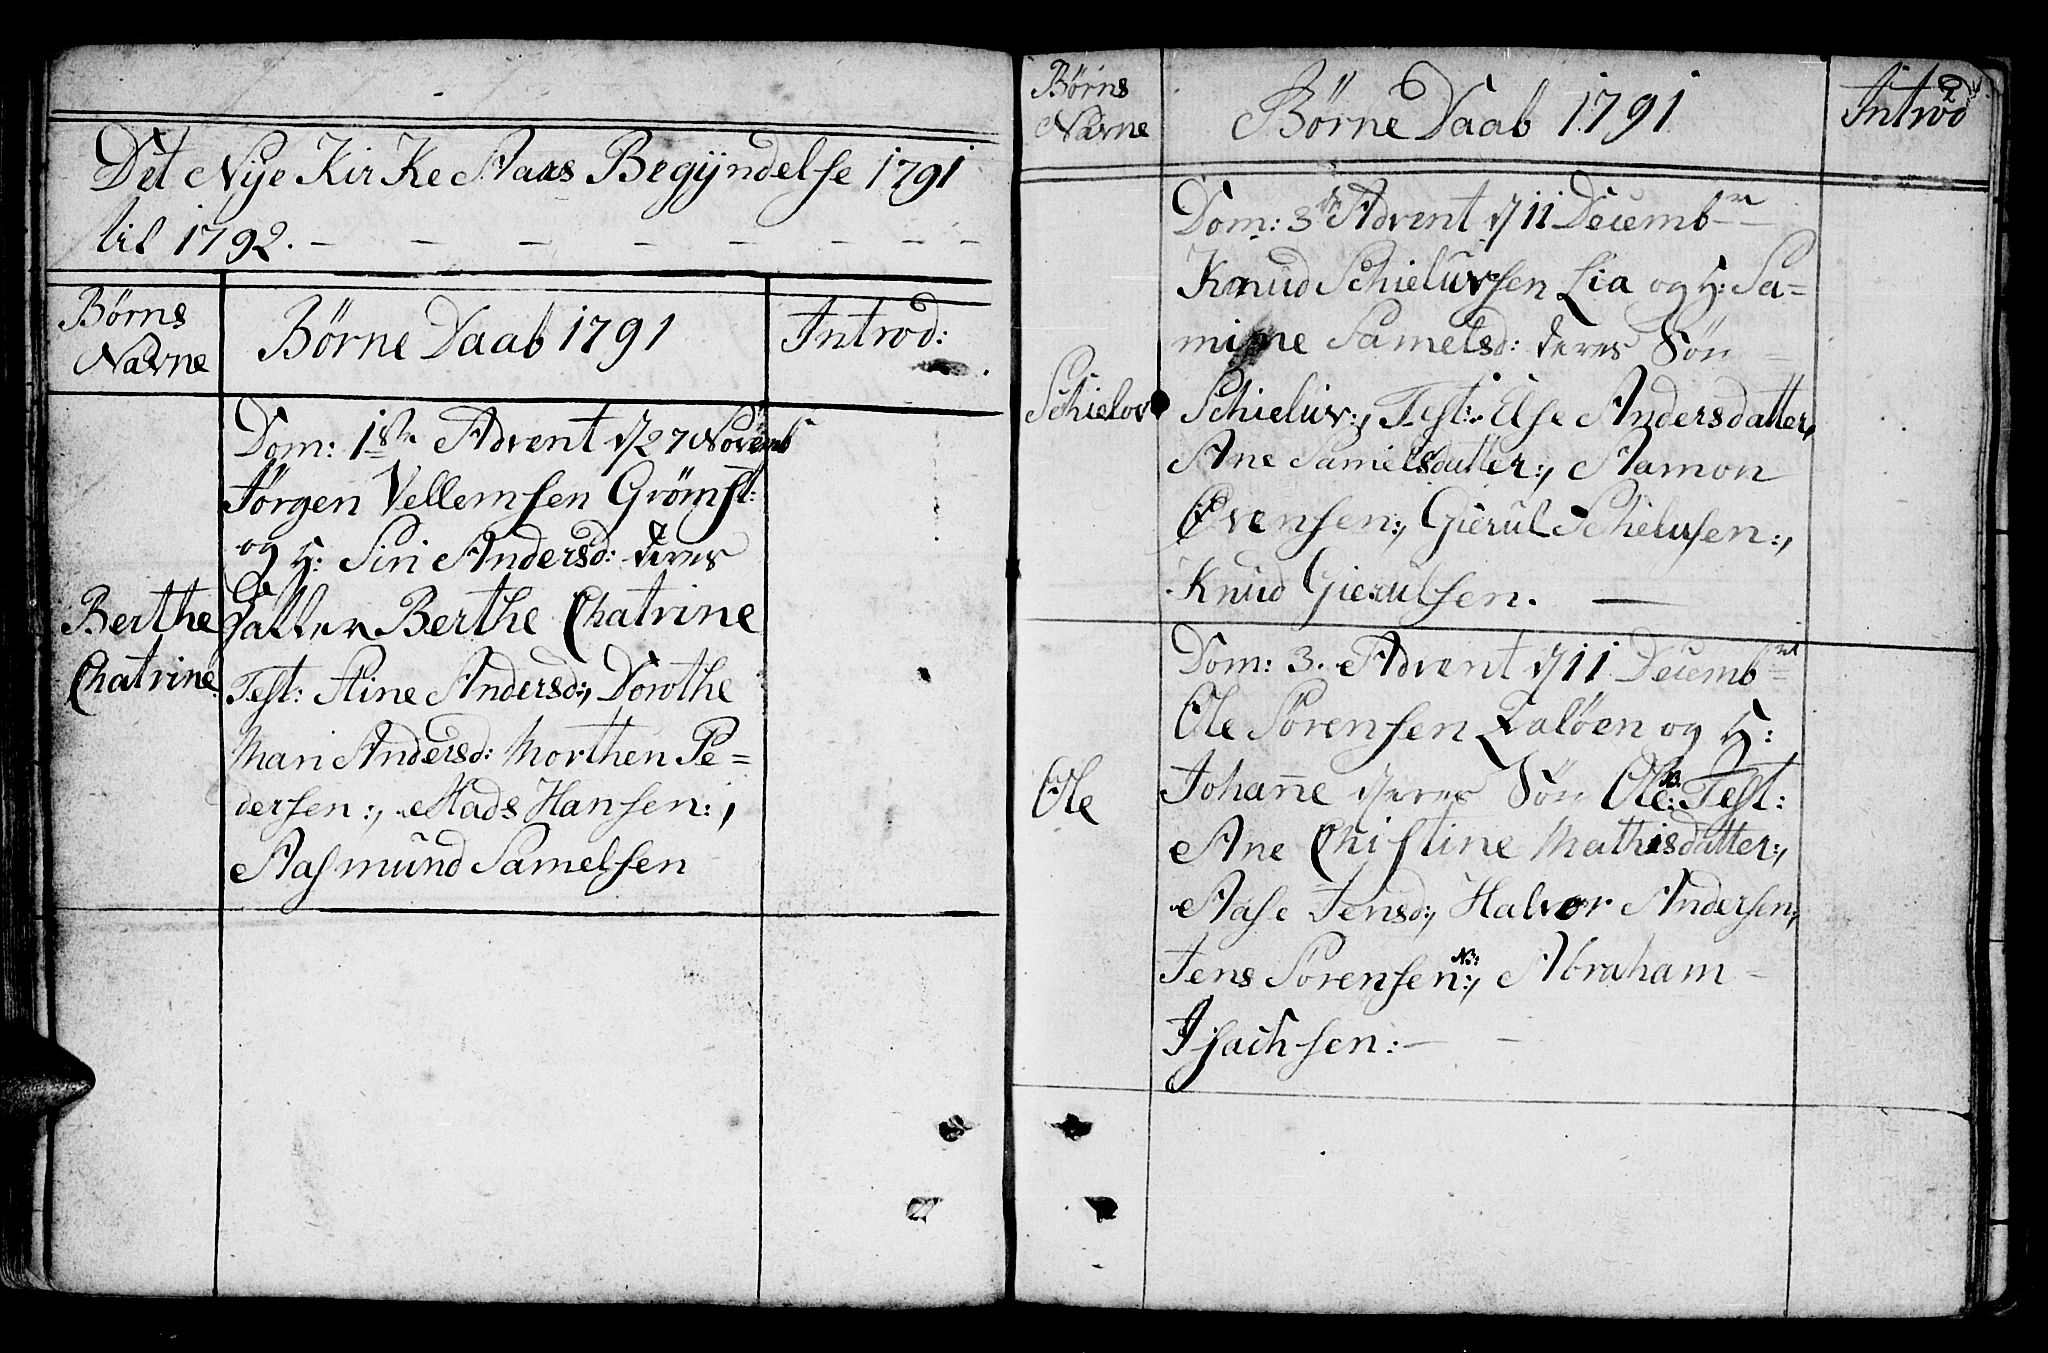 Det Nye KirKe Aars Begyndelse 1791
til 1792. — — — — — — —
Børns
Navne
Børne Daab 1791
Introd:
Dom: 1ste Advent d 27 Novemb
Jørgen Vellemsen Grömst:
og H: Siri Andersd: deres
Berthe
Datter Berthe Chatrine
Chatrine
Test: Stine Andersd:, Dorothe
Mari Andersd: Morthen Pe=
dersen:, Mads Hansen:,
Aasmund Samelsen
Børns
Navne
Børne Daab 1791
Introd
2
Dom: 3de Advent d 11 Decembr
Knud Schieluvsen Lia og H: Sa=
mine Samelsd: deres Sön —
Schielov
Schieluv:, Test: Else Andersdatter,
Ane Samelsdatter:, Aamon
Evensen:, Gierul Schielufsen:,
Knud Gierulsen. —
Dom: 3. Advent d 11 Decembr
Ole Sörensen Zalöen og H:
Ole
Johanne deres Sön Ole: Test:
Ane Chistine Mathisdatter:,
Aase Jensd:, Halvor Andersen:,
Jens Sörensen:, Abraham —
Isachsen: — —